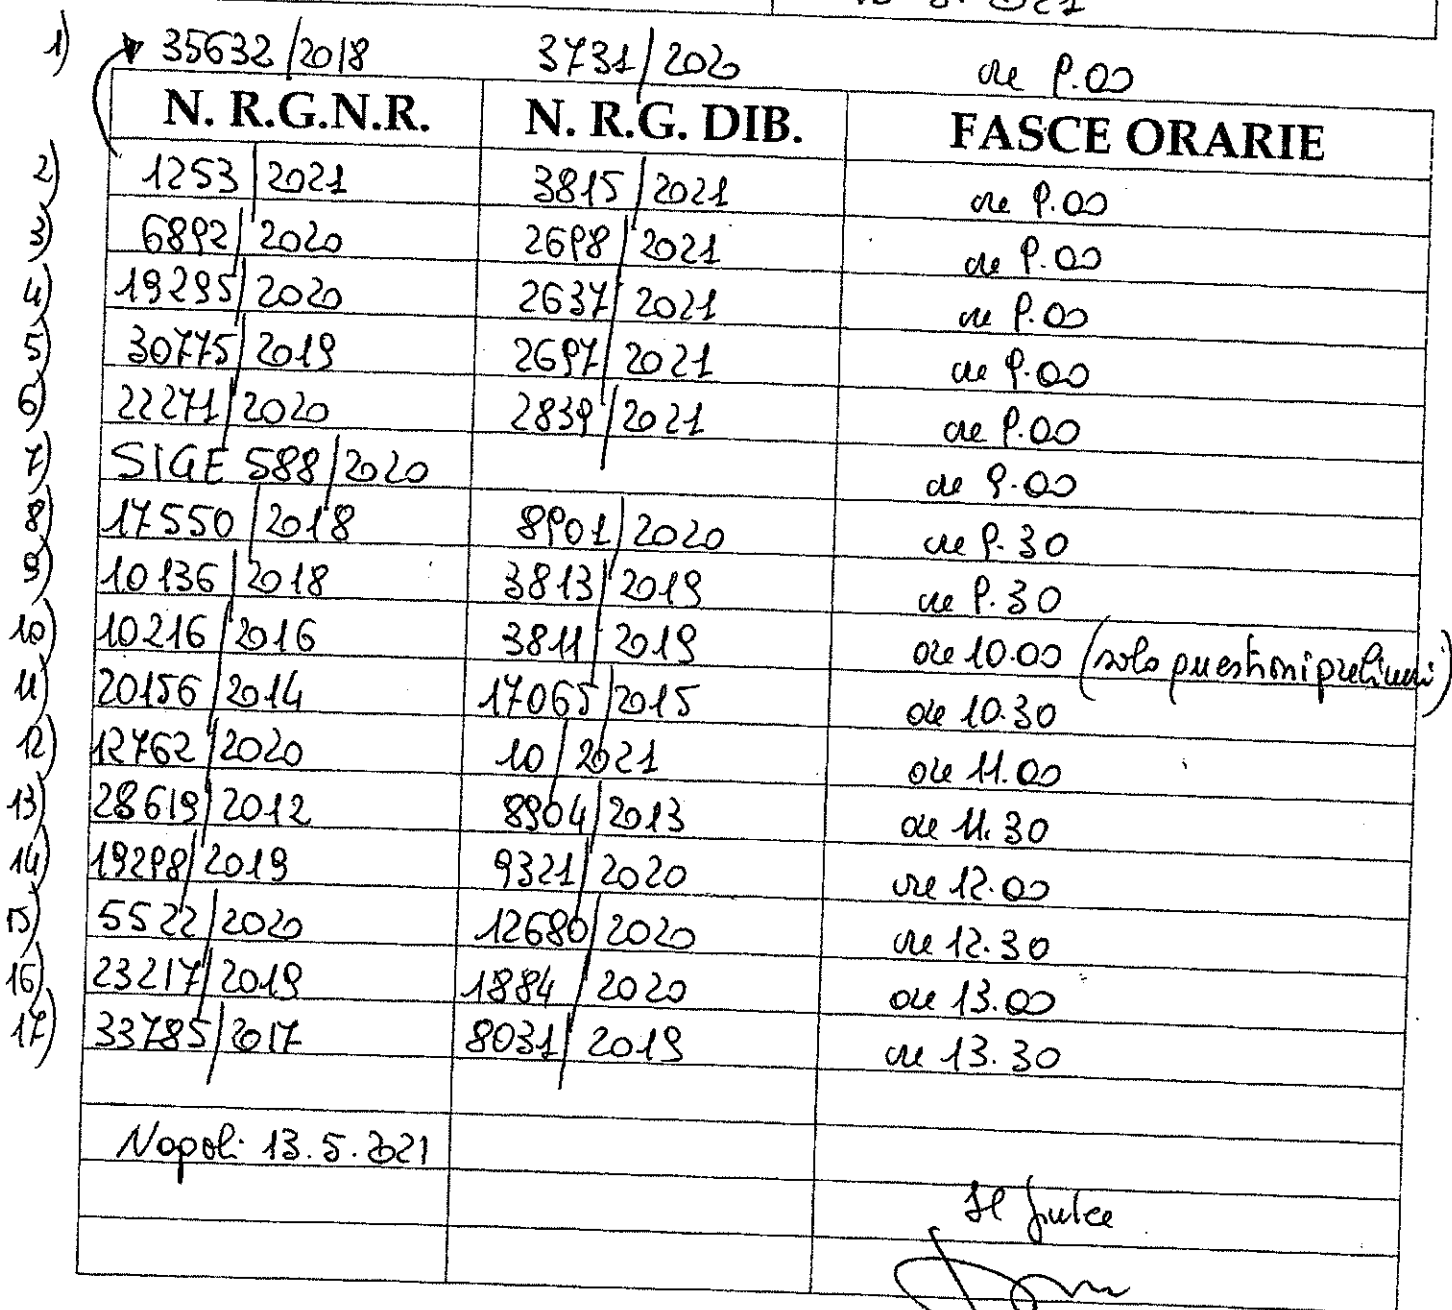 1) 35632/2018 3731/2020 ore 9.00
N. R.G.N.R. N. R.G. DIB. FASCE ORARIE
2) 1253/2021 3815/2021 ore 9.00
3) 6892/2020 2698/2021 ore 9.00
4) 19295/2020 2637/2021 ore 9.00
5) 30775/2019 2697/2021 ore 9.00
6) 22271/2020 2839/2021 ore 9.00
7) SIGE 588/2020 ore 9.00
8) 17550/2018 8901/2020 ore 9.30
9) 10136/2018 3813/2019 ore 9.30
10) 10216/2016 3811/2019 ore 10.00 (solo questioni preliminari)
11) 20156/2014 17065/2015 ore 10.30
12) 12762/2020 10/2021 ore 11.00
13) 28619/2012 8904/2013 ore 11.30
14) 19298/2019 9321/2020 ore 12.00
15) 5522/2020 12680/2020 ore 12.30
16) 23217/2019 1884/2020 ore 13.00
17) 33785/2017 8031/2019 ore 13.30
Napoli 13.5.2021
Il Giudice